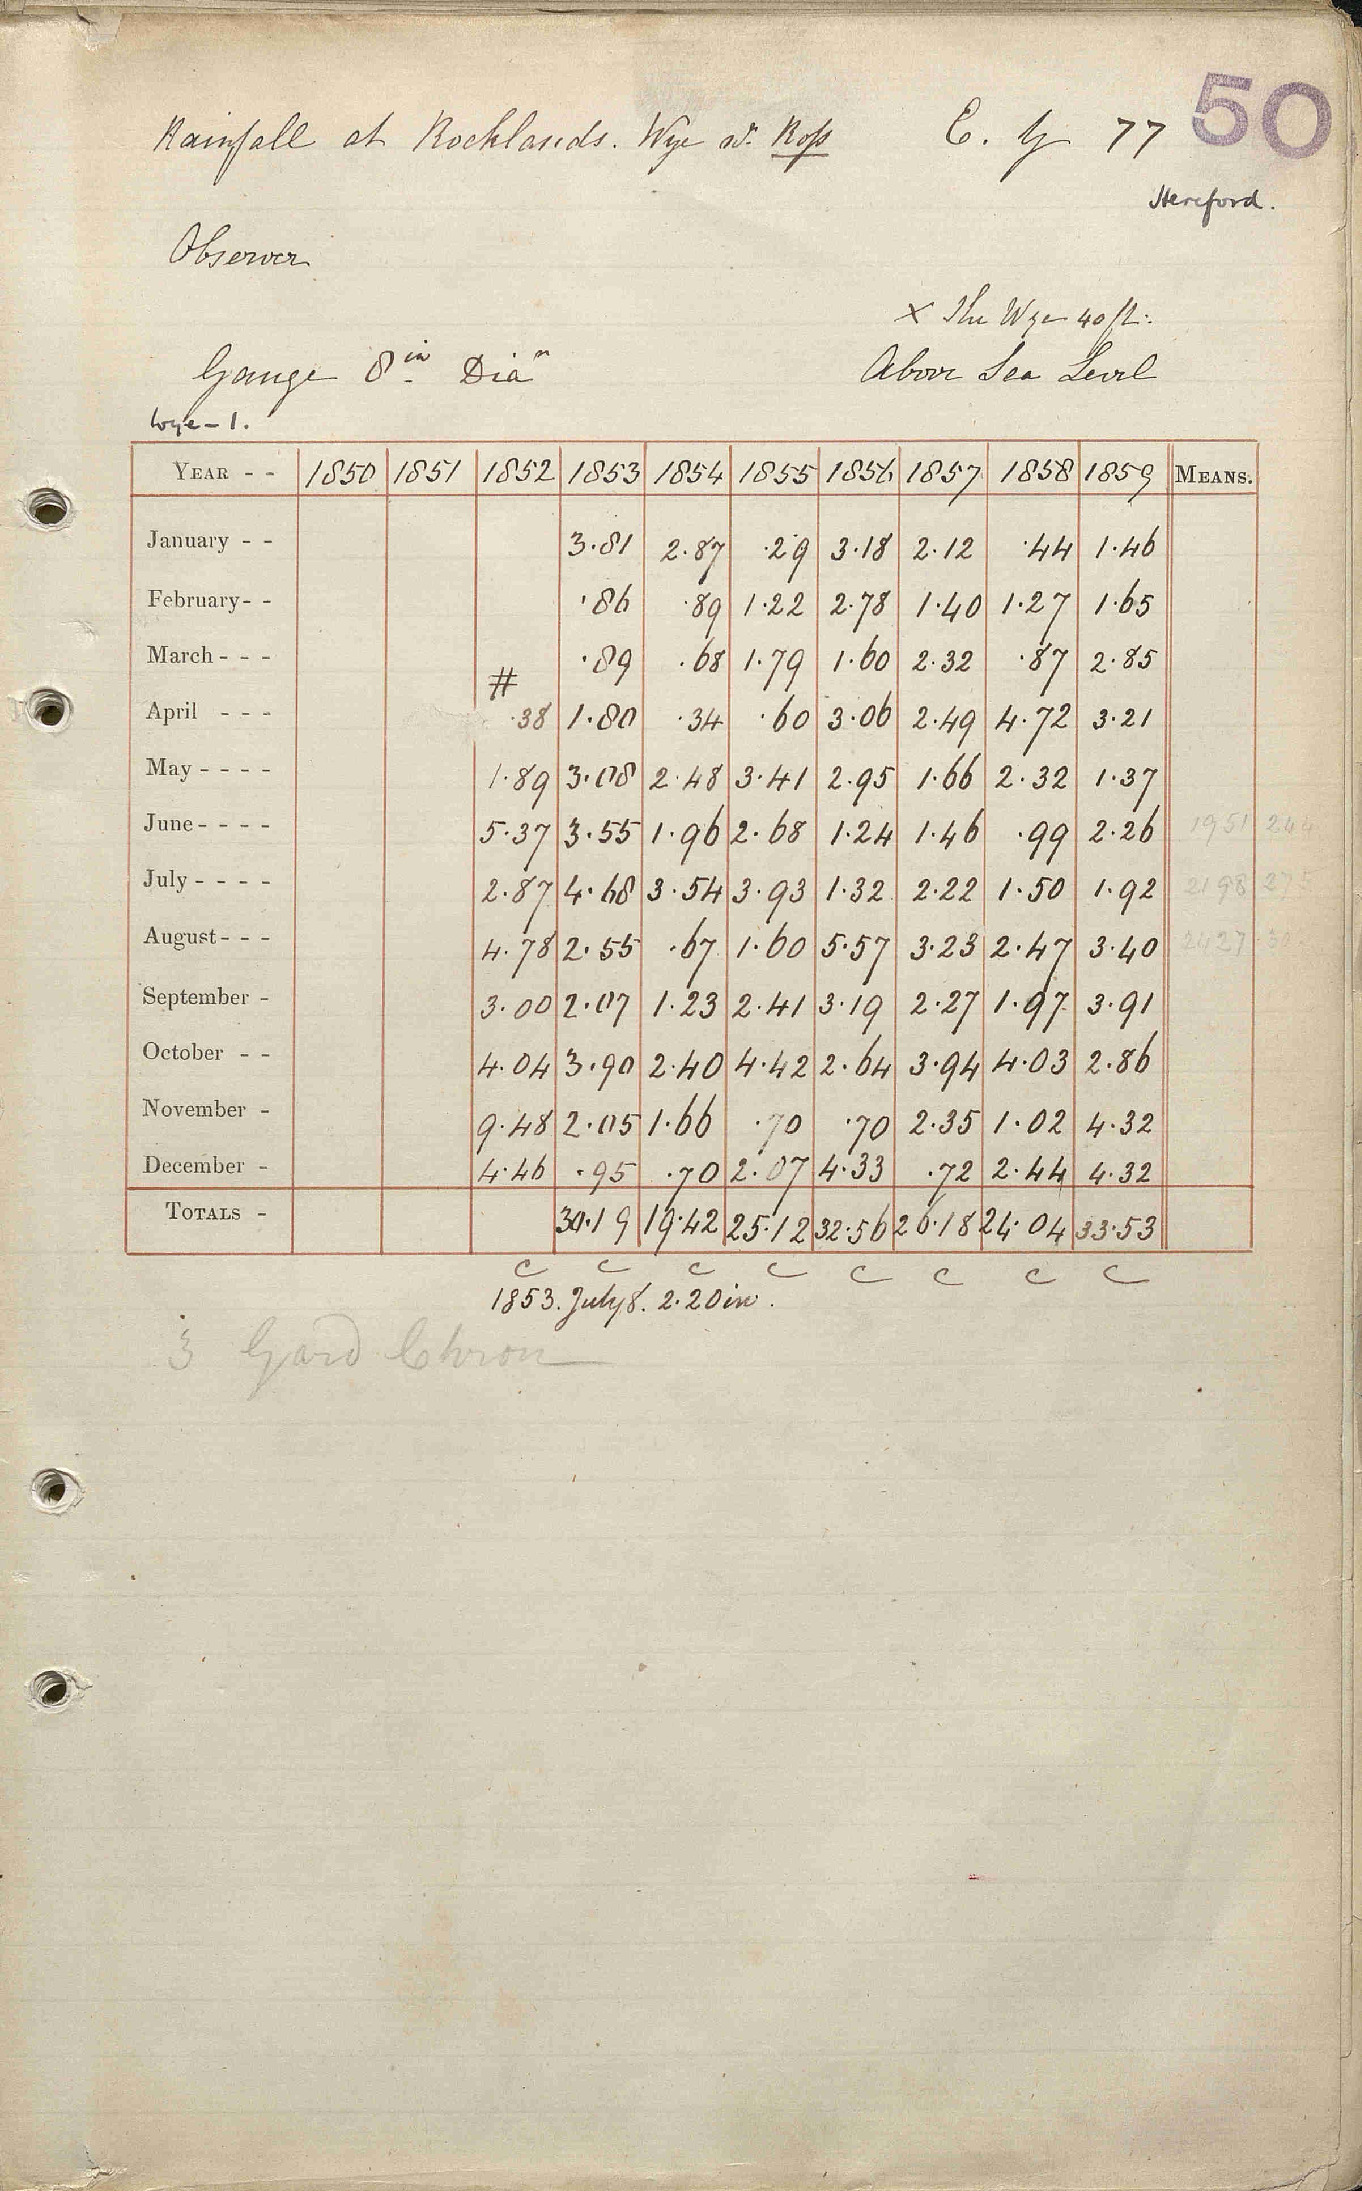 50
Rainfall at Rocklands. Wye nr. Ross E. G 77
Hereford.
Observer
× The Wye 40 ft:
Gauge 8in Diam Above Sea Level
Wye-1.
YEAR - - 1850 1851 1852 1853 1854 1855 1856 1857 1858 1859 MEANS.
January - - 3.81 2.87 .29 3.18 2.12 .44 1.46
February- - .86 .89 1.22 2.78 1.40 1.27 1.65
March - - - .89 .68 1.79 1.60 2.32 .87 2.85
#
April - - - .38 1.80 .34 .60 3.06 2.49 4.72 3.21
May - - - - 1.89 3.08 2.48 3.41 2.95 1.66 2.32 1.37
June - - - - 5.37 3.55 1.96 2.68 1.24 1.46 .99 2.26 1951 244
July - - - - 2.87 4.68 3.54 3.93 1.32 2.22 1.50 1.92 2198 275
August - - - 4.78 2.55 .67 1.60 5.57 3.23 2.47 3.40 2427
September - 3.00 2.07 1.23 2.41 3.19 2.27 1.97 3.91
October - - 4.04 3.90 2.40 4.42 2.64 3.94 4.03 2.86
November - 9.48 2.05 1.66 .70 .70 2.35 1.02 4.32
December - 4.46 .95 .70 2.07 4.33 .72 2.44 4.32
TOTALS - 30.19 19.42 25.12 32.56 26.18 24.04 33.53
C C C C C C C C
1853. July 8. 2.20 in.
3 Gard Chron